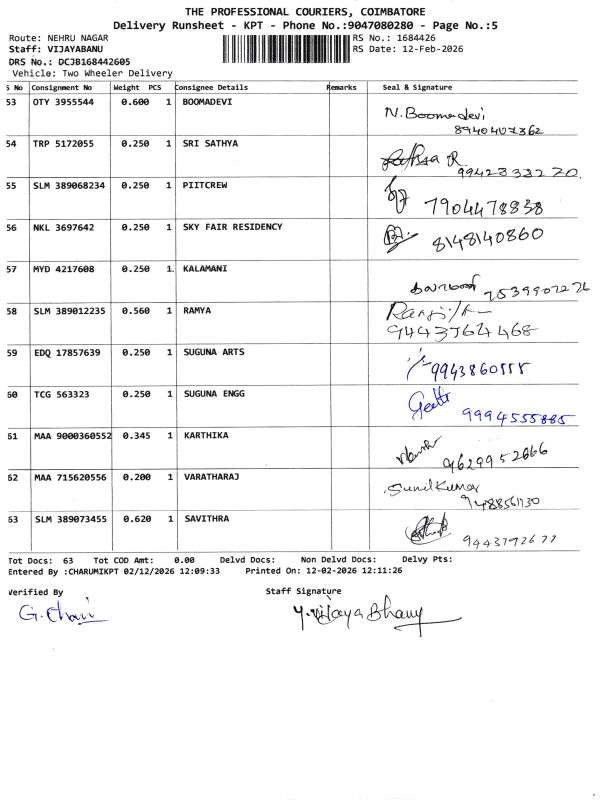 THE PROFESSIONAL COURIERS, COIMBATORE
Delivery Runsheet - KPT - Phone No.:9047080280 - Page No.:5
Route: NEHRU NAGAR RS No.: 1684426
Staff: VIJAYABANU RS Date: 12-Feb-2026
DRS No.: DCJB168442605
Vehicle: Two Wheeler Delivery
S No Consignment No Weight PCS Consignee Details Remarks Seal & Signature
53 OTY 3955544 0.600 1 BOOMADEVI
N. Boomadevi
8940407362
54 TRP 5172055 0.250 1 SRI SATHYA
R
9942333220
55 SLM 389068234 0.250 1 PIITCREW
7904478838
56 NKL 3697642 0.250 1 SKY FAIR RESIDENCY
8148140860
57 MYD 4217608 0.250 1 KALAMANI
58 SLM 389012235 0.560 1 RAMYA
9443764468
59 EDQ 17857639 0.250 1 SUGUNA ARTS
60 TCG 563323 0.250 1 SUGUNA ENGG
Geetha
9994555885
61 MAA 9000360552 0.345 1 KARTHIKA
9629952666
62 MAA 715620556 0.200 1 VARATHARAJ
Sunil Kumar
63 SLM 389073455 0.620 1 SAVITHRA
Tot Docs: 63 Tot COD Amt: 0.00 Delvd Docs: Non Delvd Docs: Delvy Pts:
Entered By :CHARUMIKPT 02/12/2026 12:09:33 Printed On: 12-02-2026 12:11:26
Verified By Staff Signature